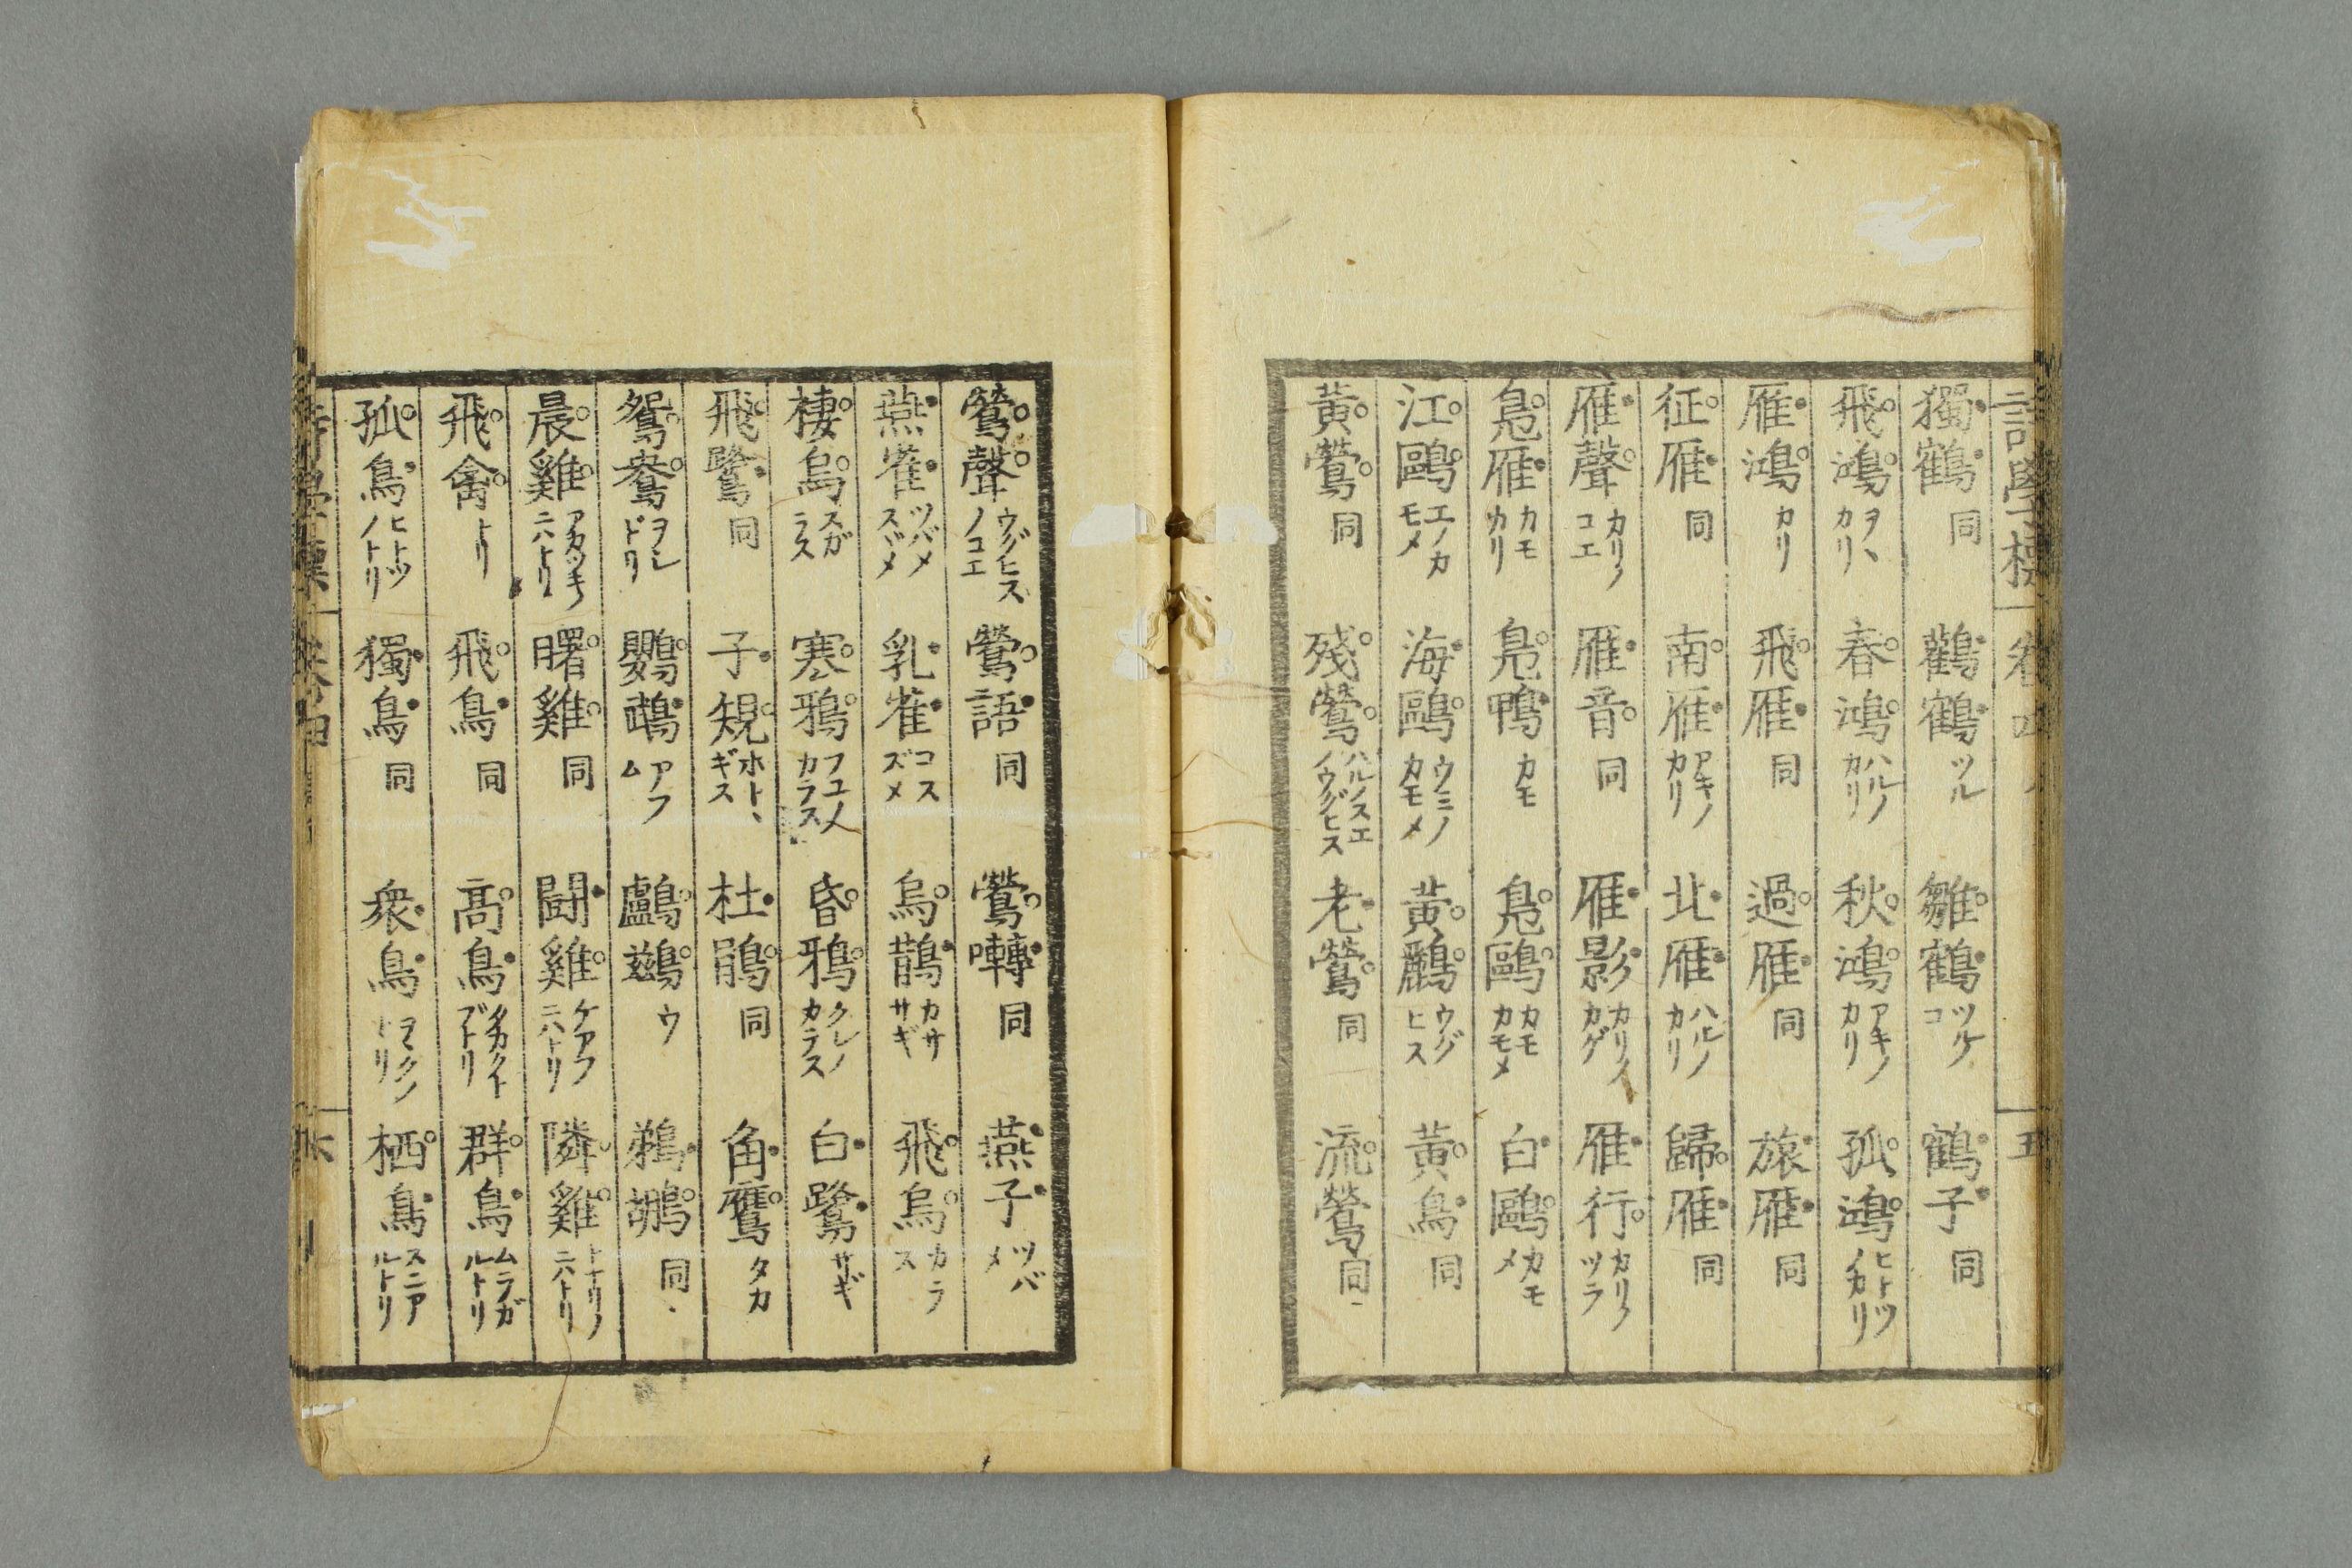 獨鶴 同 鸛鶴 ツル 雛鶴 ツルノコ 鶴子 同
飛鴻 ヲヽカリ 春鴻 ハルノカリ 秋鴻 アキノカリ 孤鴻 ヒトツノカリ
雁鴻 カリ 飛雁 同 過雁 同 旅雁 同
征雁 同 南雁 アキノカリ 北雁 ハルノカリ 歸雁 同
雁聲 カリノコエ 雁音 同 雁影 カリノカゲ 雁行 カリノツラ
鳬雁 カモカリ 鳬鴨 カモ 鳬鷗 カモカモメ 白鷗 カモメ
江鷗 エノカモメ 海鷗 ウミノカモメ 黄鸝 ウグヒス 黄鳥 同
黄鶯 同 殘鶯 ハルノスエノウグヒス 老鶯 同 流鶯 同
鶯聲 ウグヒスノコエ 鶯語 同 鶯囀 同 燕子 ツバメ
燕雀 ツバメスヾメ 乳雀 コスズメ 烏鵲 カササギ 飛烏 カラス
棲烏 スガラス 塞鴉 フユノカラス 昏鴉 クレノカラス 白鷺 サギ
飛鷺 同 子規 ホトヽギス 杜鵑 同 角鷹 タカ
鴛鴦 ヲシドリ 鸚鵡 アフム 鸕鷀 ウ 鵜鶘 同
晨雞 アカツキノニハトリ 曙雞 同 闘雞 ケアフニハトリ 隣雞 トナリノニハトリ
飛禽 トリ 飛鳥 同 高鳥 タカクトブトリ 群鳥 ムラガルトリ
孤鳥 ヒトツノトリ 獨鳥 同 衆鳥 ヲヽクノトリ 栖鳥 スニアルトリ